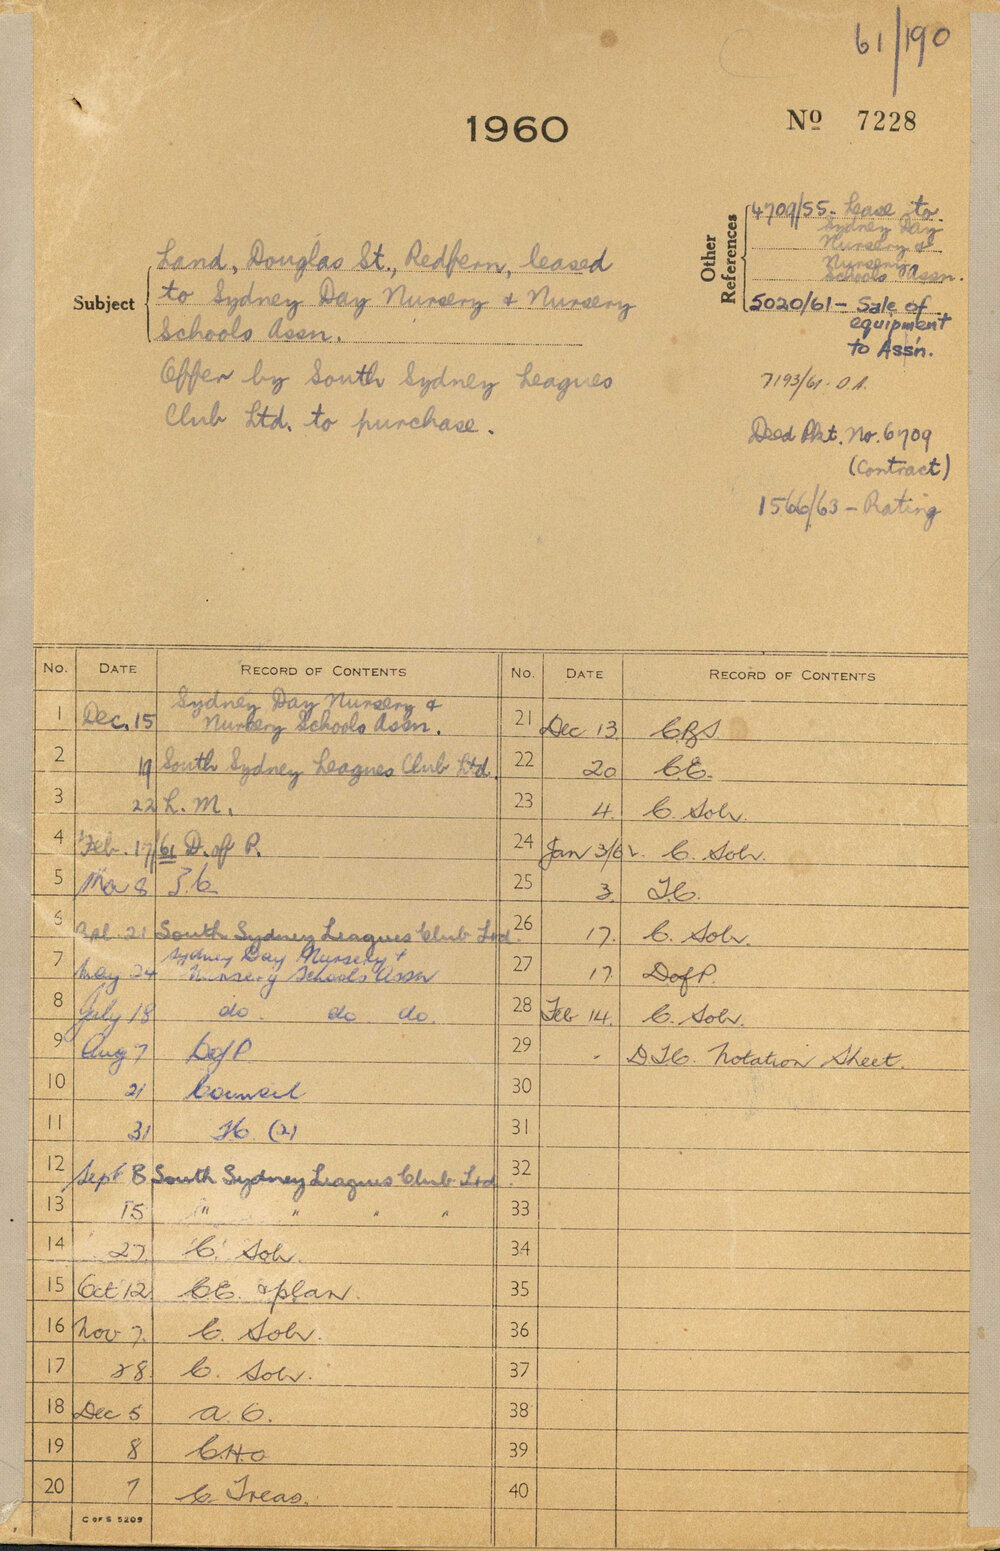 61/190
1960
No 7228
Subject
Land, Douglas St., Redfern, leased
to Sydney Day Nursery & Nursery
Schools Assn.
Offer by South Sydney Leagues
Club Ltd. to purchase.
Other References
4709/55 - Lease to
Sydney Day
Nursery &
Nursery
Schools Assn.
5020/61 - Sale of
equipment
to Ass'n.
7193/61 -
Deed Pkt. No. 6709
(Contract)
1566/63 - Rating
No. DATE RECORD OF CONTENTS
1 Dec. 15 Sydney Day Nursery &
Nursery Schools Assn.
2 19 South Sydney Leagues Club Ltd.
3 22 L. M.
4 Feb. 17/61 D. of P.
5 Mar 8
6 Apl. 21 South Sydney Leagues Club Ltd.
7 May 24 Sydney Day Nursery &
Nursery Schools Assn
8 July 18 do. do. do.
9 Aug 7 D of P
10 21 Counsel
11 31 T.C. (2)
12 Sept 8 South Sydney Leagues Club Ltd
13 15 " " " "
14 27 C. Solr.
15 Oct 12 C.E. & plan.
16 Nov 7. C. Solr.
17 28. C. Solr.
18 Dec 5 A. O.
19 8 C.H.O
20 7 C. Treas.
C OF S 5209
No. DATE RECORD OF CONTENTS
21 Dec 13. C.B.S.
22 20 C.E.
23 4. C. Solr.
24 Jan 3/62. C. Solr.
25 3. T.C.
26 17. C. Solr.
27 17 D of P.
28 Feb 14. C. Solr.
29 - D.T.C. Notation Sheet.
30
31
32
33
34
35
36
37
38
39
40